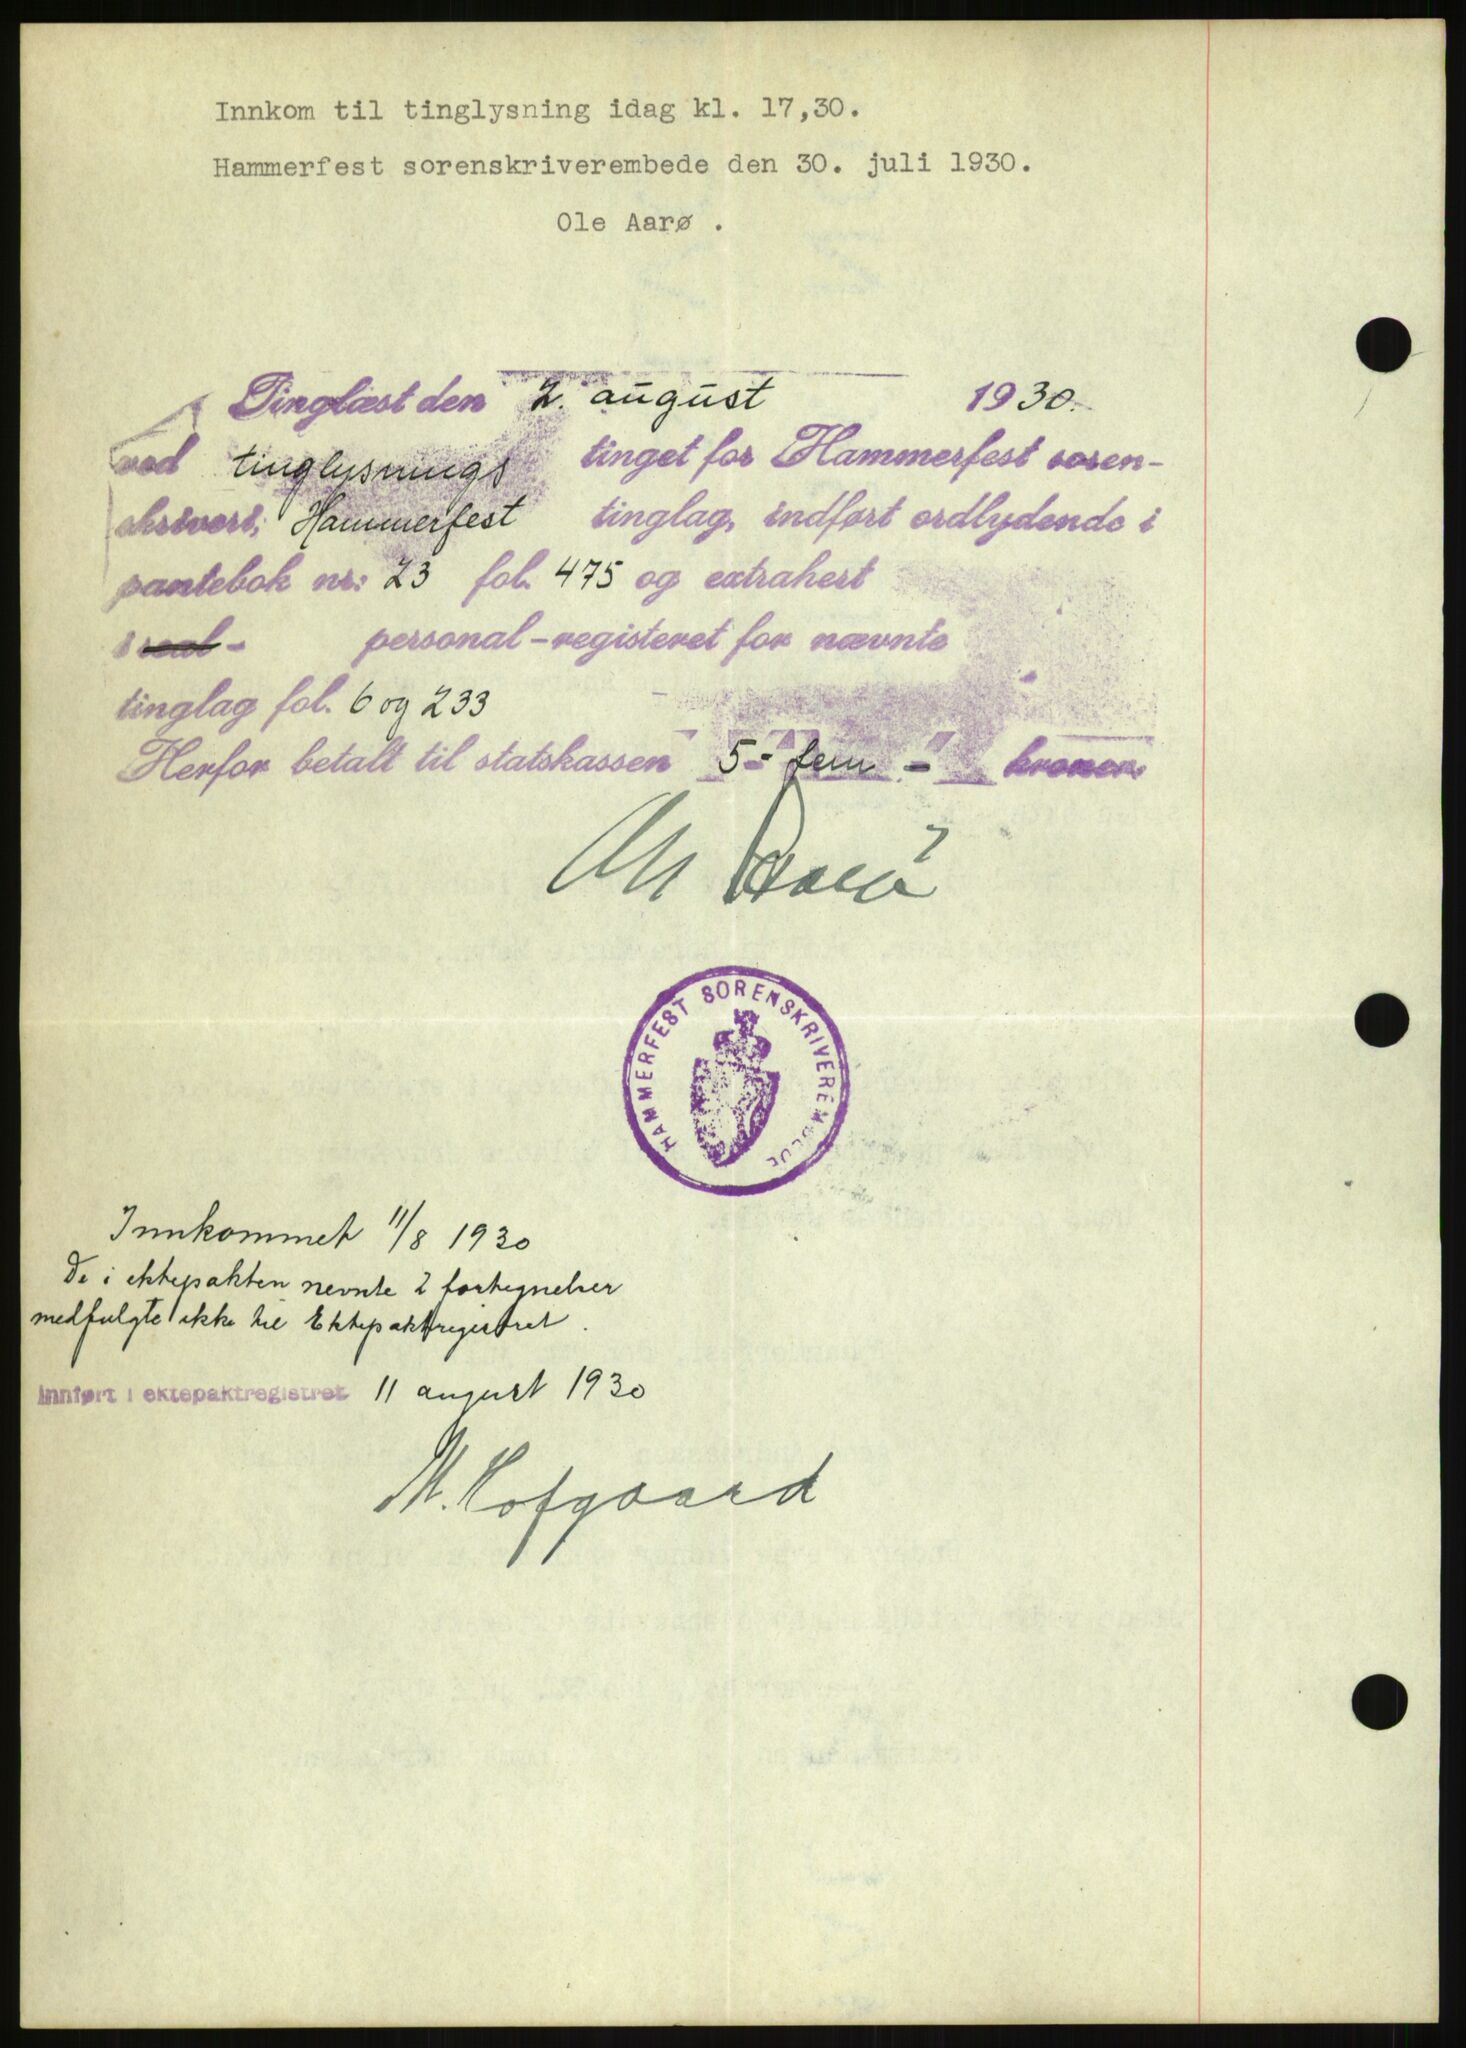 Innkom til tinglysning idag kl. 17,30.
Hammerfest sorenskriverembede den 30. juli 1930.
Ole Aarø .
Tinglæst den 2. august 1930.
ved tinglysnings tinget for Hammerfest soren-
skriveri, Hammerfest tinglag, indført ordlydende i
pantebok nr: 23 fol. 475 og extrahert
i real - personal-registeret for nævnte
tinglag fol. 6 og 233
Herfor betalt til statskassen 5 - fem - kroner.
Ole Aarø
HAMMERFEST SORENSKRIVEREMBEDE
Innkommet 11/8 1930
De i ektepakten nevnte 2 fortegnelser
medfulgte ikke til Ektepaktregistret.
Innført i ektepaktregistret 11 august 1930
M. Hofgaard